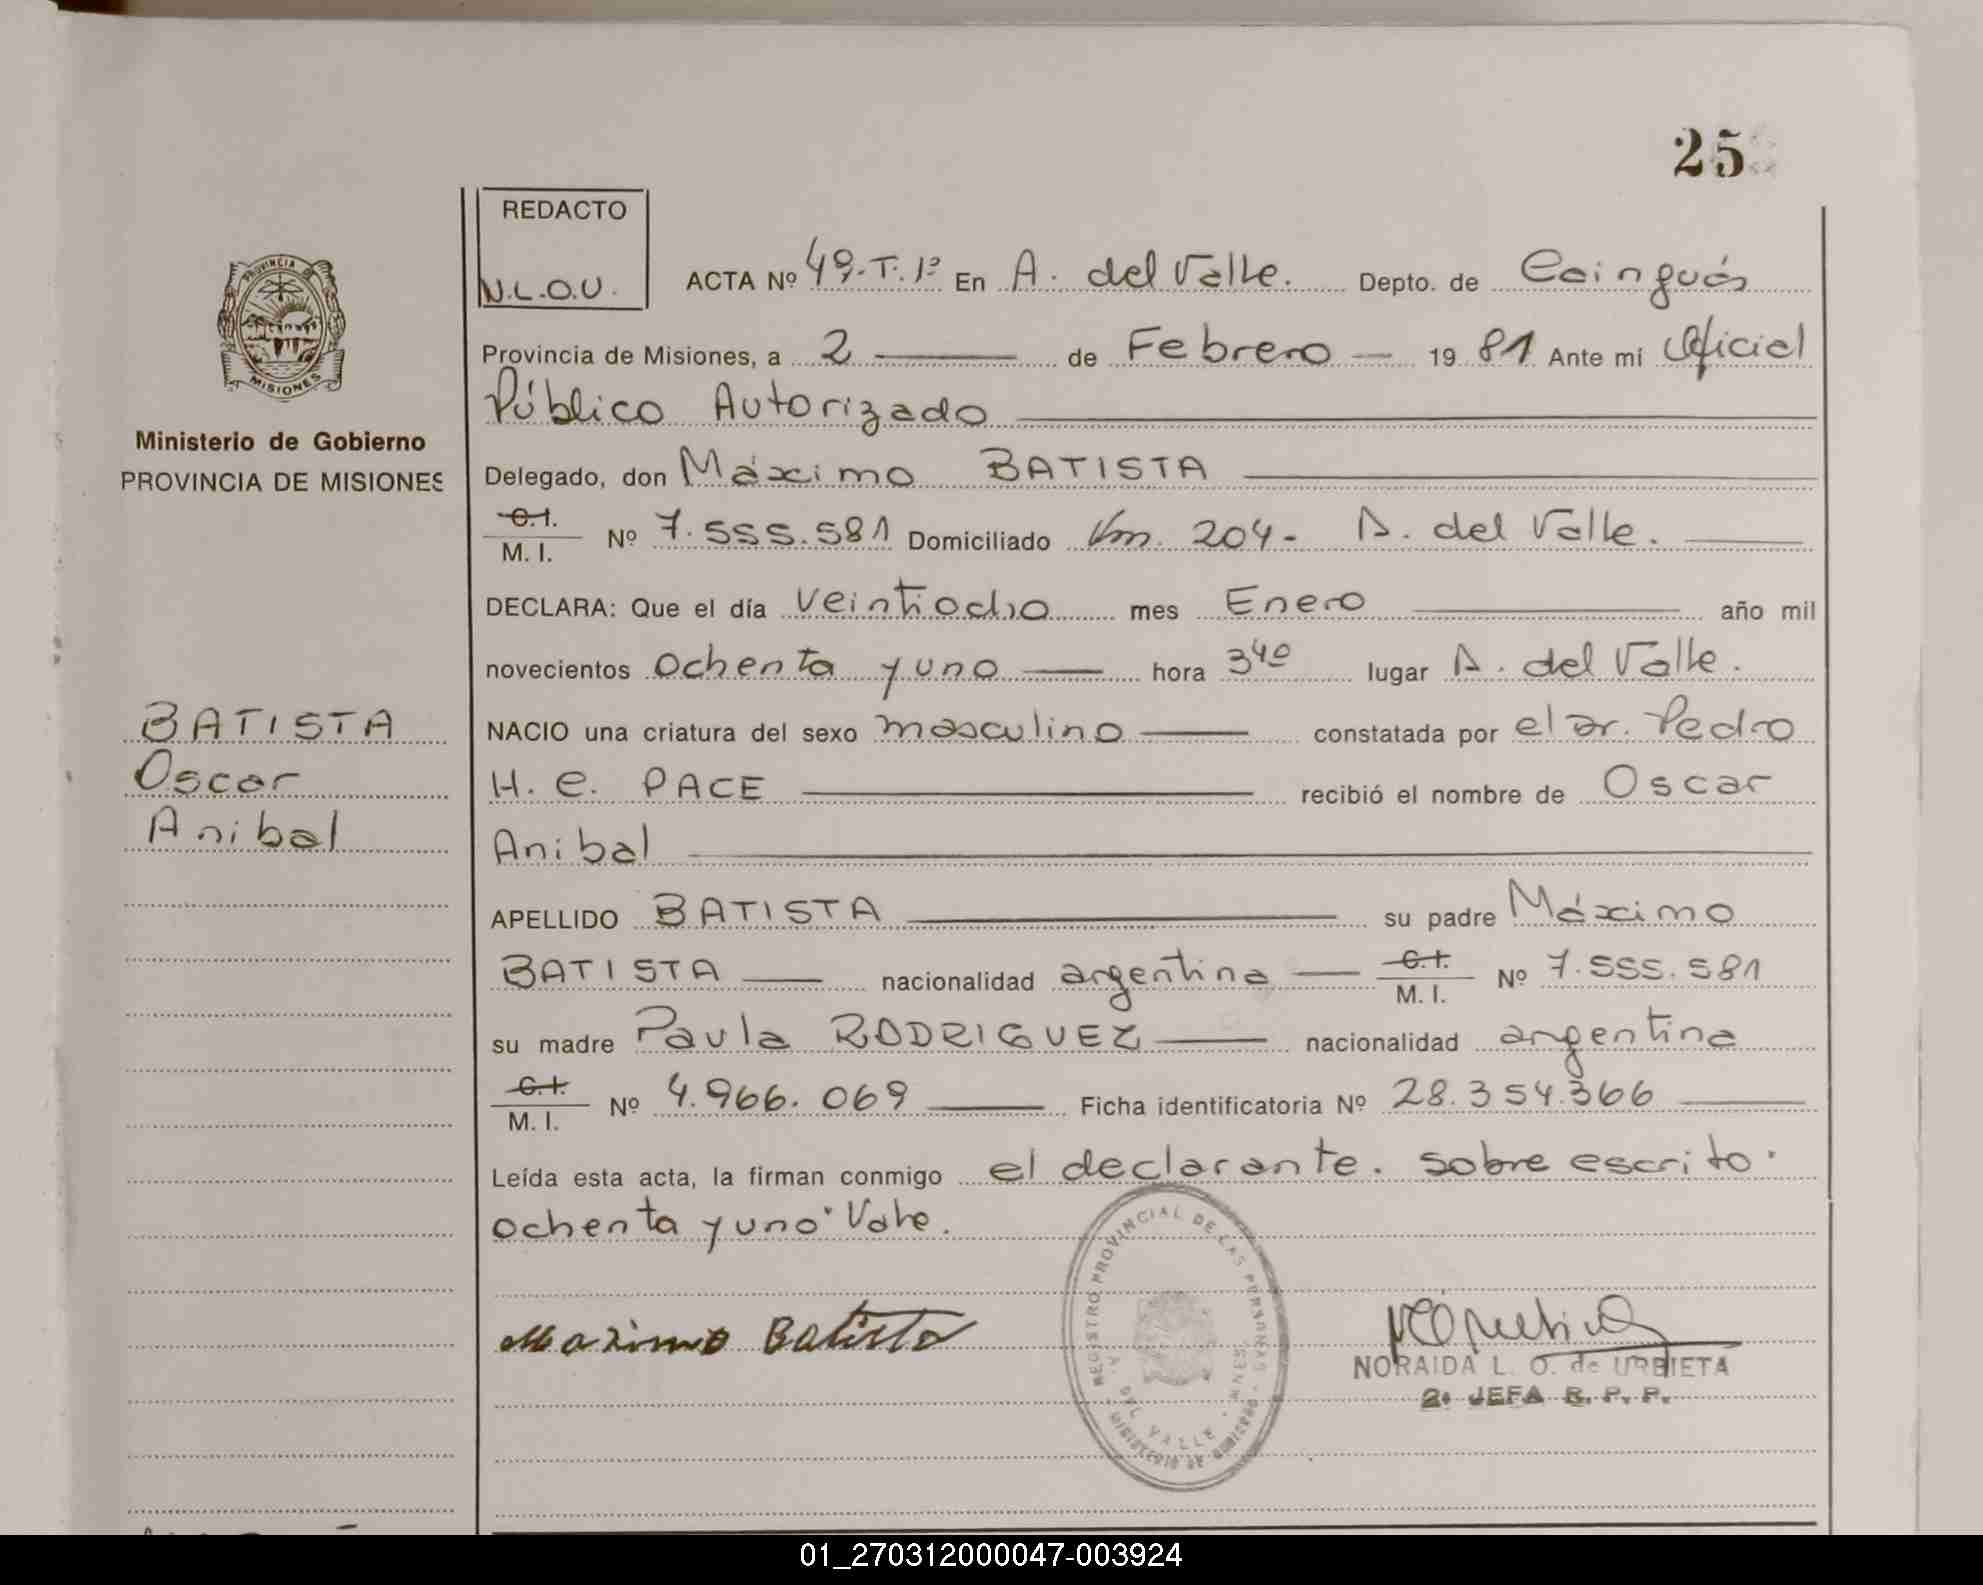 25
REDACTO
N.L.O.U.
ACTA Nº 49.T.1º En A. del Valle. Depto. de Cainguás
Provincia de Misiones, a 2 de Febrero 1981 Ante mí Oficial
Público Autorizado
Delegado, don Máximo BATISTA
C.I.
M. I. Nº 7.555.581 Domiciliado Km. 204- A. del Valle.
DECLARA: Que el día veintiocho mes Enero año mil
novecientos ochenta y uno hora 3⁴⁰ lugar A. del Valle.
NACIO una criatura del sexo masculino constatada por el Dr. Pedro
H. C. PACE recibió el nombre de Oscar
Anibal
APELLIDO BATISTA su padre Máximo
BATISTA nacionalidad argentina C.I.
M. I. Nº 7.555.581
su madre Paula RODRIGUEZ nacionalidad argentina
C.I.
M. I. Nº 4.966.069 Ficha identificatoria Nº 28.354.366
Leída esta acta, la firman conmigo el declarante. sobre escrito"
ochenta y uno" Vale.
Maximo Batista
NORAIDA L. O. de URBIETA
2ª JEFA R. P. P.
REGISTRO PROVINCIAL DE LAS PERSONAS
A. DEL VALLE - MNES.
MINISTERIO DE GOBIERNO
PROVINCIA
MISIONES
Ministerio de Gobierno
PROVINCIA DE MISIONES
BATISTA
Oscar
Anibal
01_270312000047-003924